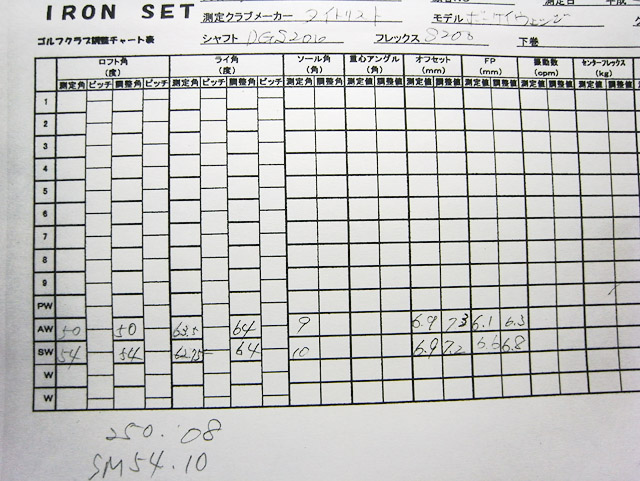 IRON SET
測定クラブメーカー タイトリスト モデル ボーケイウェッジ
ゴルフクラブ調整チャート表 シャフト DGS200 フレックス S200 下巻
ロフト角 ライ角 ソール角 重心アングル オフセット FP 振動数 センターフレックス
(度) (度) (角) (角) (mm) (mm) (cpm) (kg)
測定角 ピッチ 調整角 ピッチ 測定角 ピッチ 調整角 ピッチ 測定角 調整角 測定値 調整値 測定値 調整値 測定値 調整値 測定値 調整値 測定値 調整値
1
2
3
4
5
6
7
8
9
PW
AW 50 50 63.5 64 9 6.9 7.3 6.1 6.3
SW 54 54 62.75 64 10 6.9 7.2 6.6 6.8
W
W
250.08
SM54.10